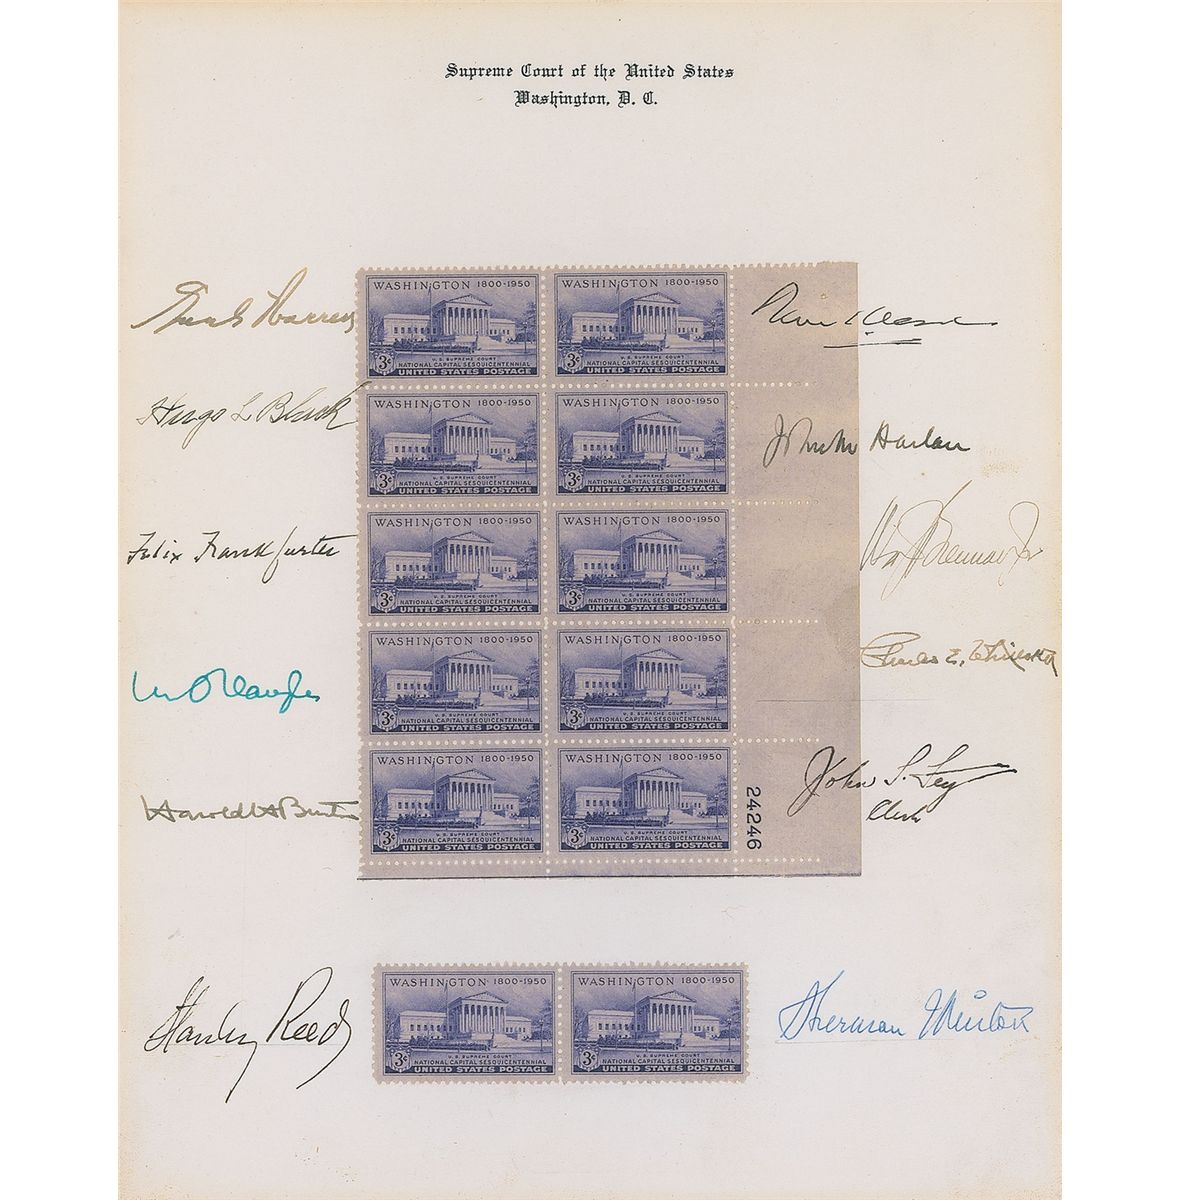 Supreme Court of the United States
Washington, D. C.
Earl Warren
WASHINGTON 1800-1950
U.S. SUPREME COURT
3¢ NATIONAL CAPITAL SESQUICENTENNIAL
UNITED STATES POSTAGE
WASHINGTON 1800-1950
U.S. SUPREME COURT
3¢ NATIONAL CAPITAL SESQUICENTENNIAL
UNITED STATES POSTAGE
Hugo L Black
WASHINGTON 1800-1950
U.S. SUPREME COURT
3¢ NATIONAL CAPITAL SESQUICENTENNIAL
UNITED STATES POSTAGE
WASHINGTON 1800-1950
U.S. SUPREME COURT
3¢ NATIONAL CAPITAL SESQUICENTENNIAL
UNITED STATES POSTAGE
John M Harlan
Felix Frankfurter
WASHINGTON 1800-1950
U.S. SUPREME COURT
3¢ NATIONAL CAPITAL SESQUICENTENNIAL
UNITED STATES POSTAGE
WASHINGTON 1800-1950
U.S. SUPREME COURT
3¢ NATIONAL CAPITAL SESQUICENTENNIAL
UNITED STATES POSTAGE
Wm J Brennan Jr
Wm O Douglas
WASHINGTON 1800-1950
U.S. SUPREME COURT
3¢ NATIONAL CAPITAL SESQUICENTENNIAL
UNITED STATES POSTAGE
WASHINGTON 1800-1950
U.S. SUPREME COURT
3¢ NATIONAL CAPITAL SESQUICENTENNIAL
UNITED STATES POSTAGE
Charles E. Whittaker
Harold H Burton
WASHINGTON 1800-1950
U.S. SUPREME COURT
3¢ NATIONAL CAPITAL SESQUICENTENNIAL
UNITED STATES POSTAGE
WASHINGTON 1800-1950
U.S. SUPREME COURT
3¢ NATIONAL CAPITAL SESQUICENTENNIAL
UNITED STATES POSTAGE
24246
John S. Fey
Clerk
Stanley Reed
WASHINGTON 1800-1950
U.S. SUPREME COURT
3¢ NATIONAL CAPITAL SESQUICENTENNIAL
UNITED STATES POSTAGE
WASHINGTON 1800-1950
U.S. SUPREME COURT
3¢ NATIONAL CAPITAL SESQUICENTENNIAL
UNITED STATES POSTAGE
Sherman Minton